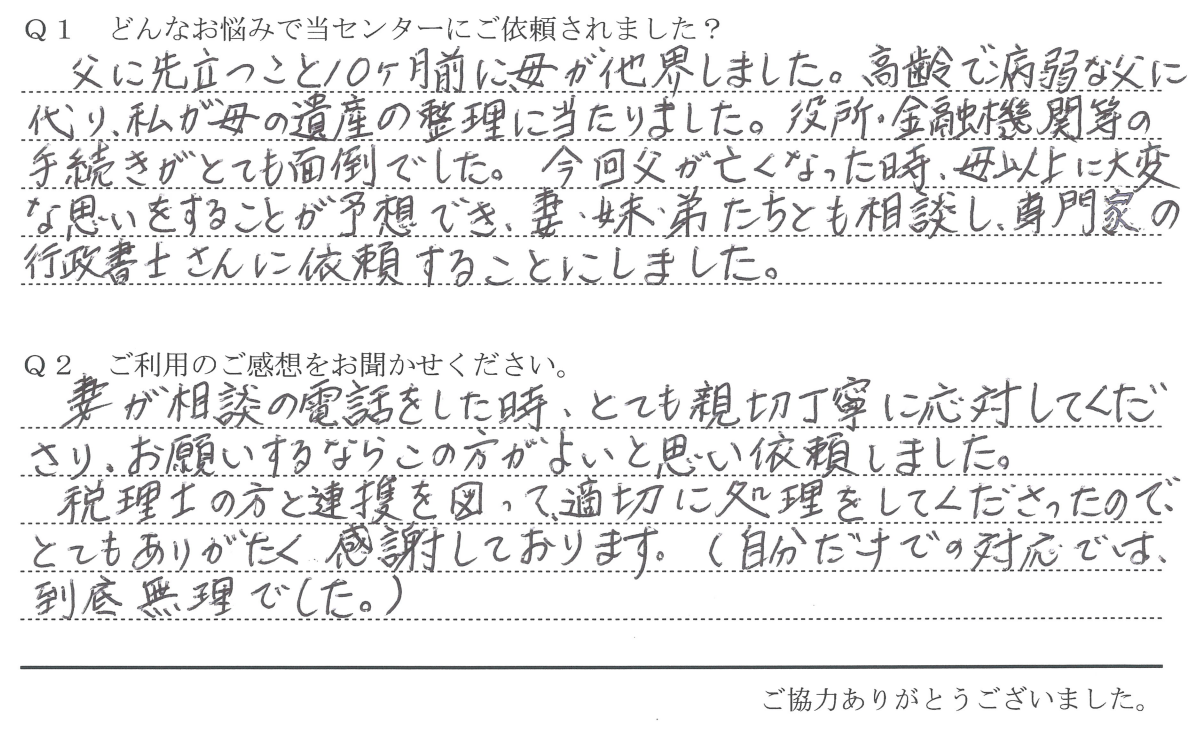 Q1 どんなお悩みで当センターにご依頼されました？
父に先立つこと10ヶ月前に、母が他界しました。高齢で病弱な父に
代り、私が母の遺産の整理に当たりました。役所・金融機関等の
手続きがとても面倒でした。今回父が亡くなった時、母以上に大変
な思いをすることが予想でき、妻・妹・弟たちとも相談し、専門家の
行政書士さんに依頼することにしました。
Q2 ご利用のご感想をお聞かせください。
妻が相談の電話をした時、とても親切丁寧に応対してくだ
さり、お願いするならこの方がよいと思い依頼しました。
税理士の方と連携を図って、適切に処理をしてくださったので、
とてもありがたく感謝しております。（自分だけでの対応では、
到底無理でした。）
ご協力ありがとうございました。